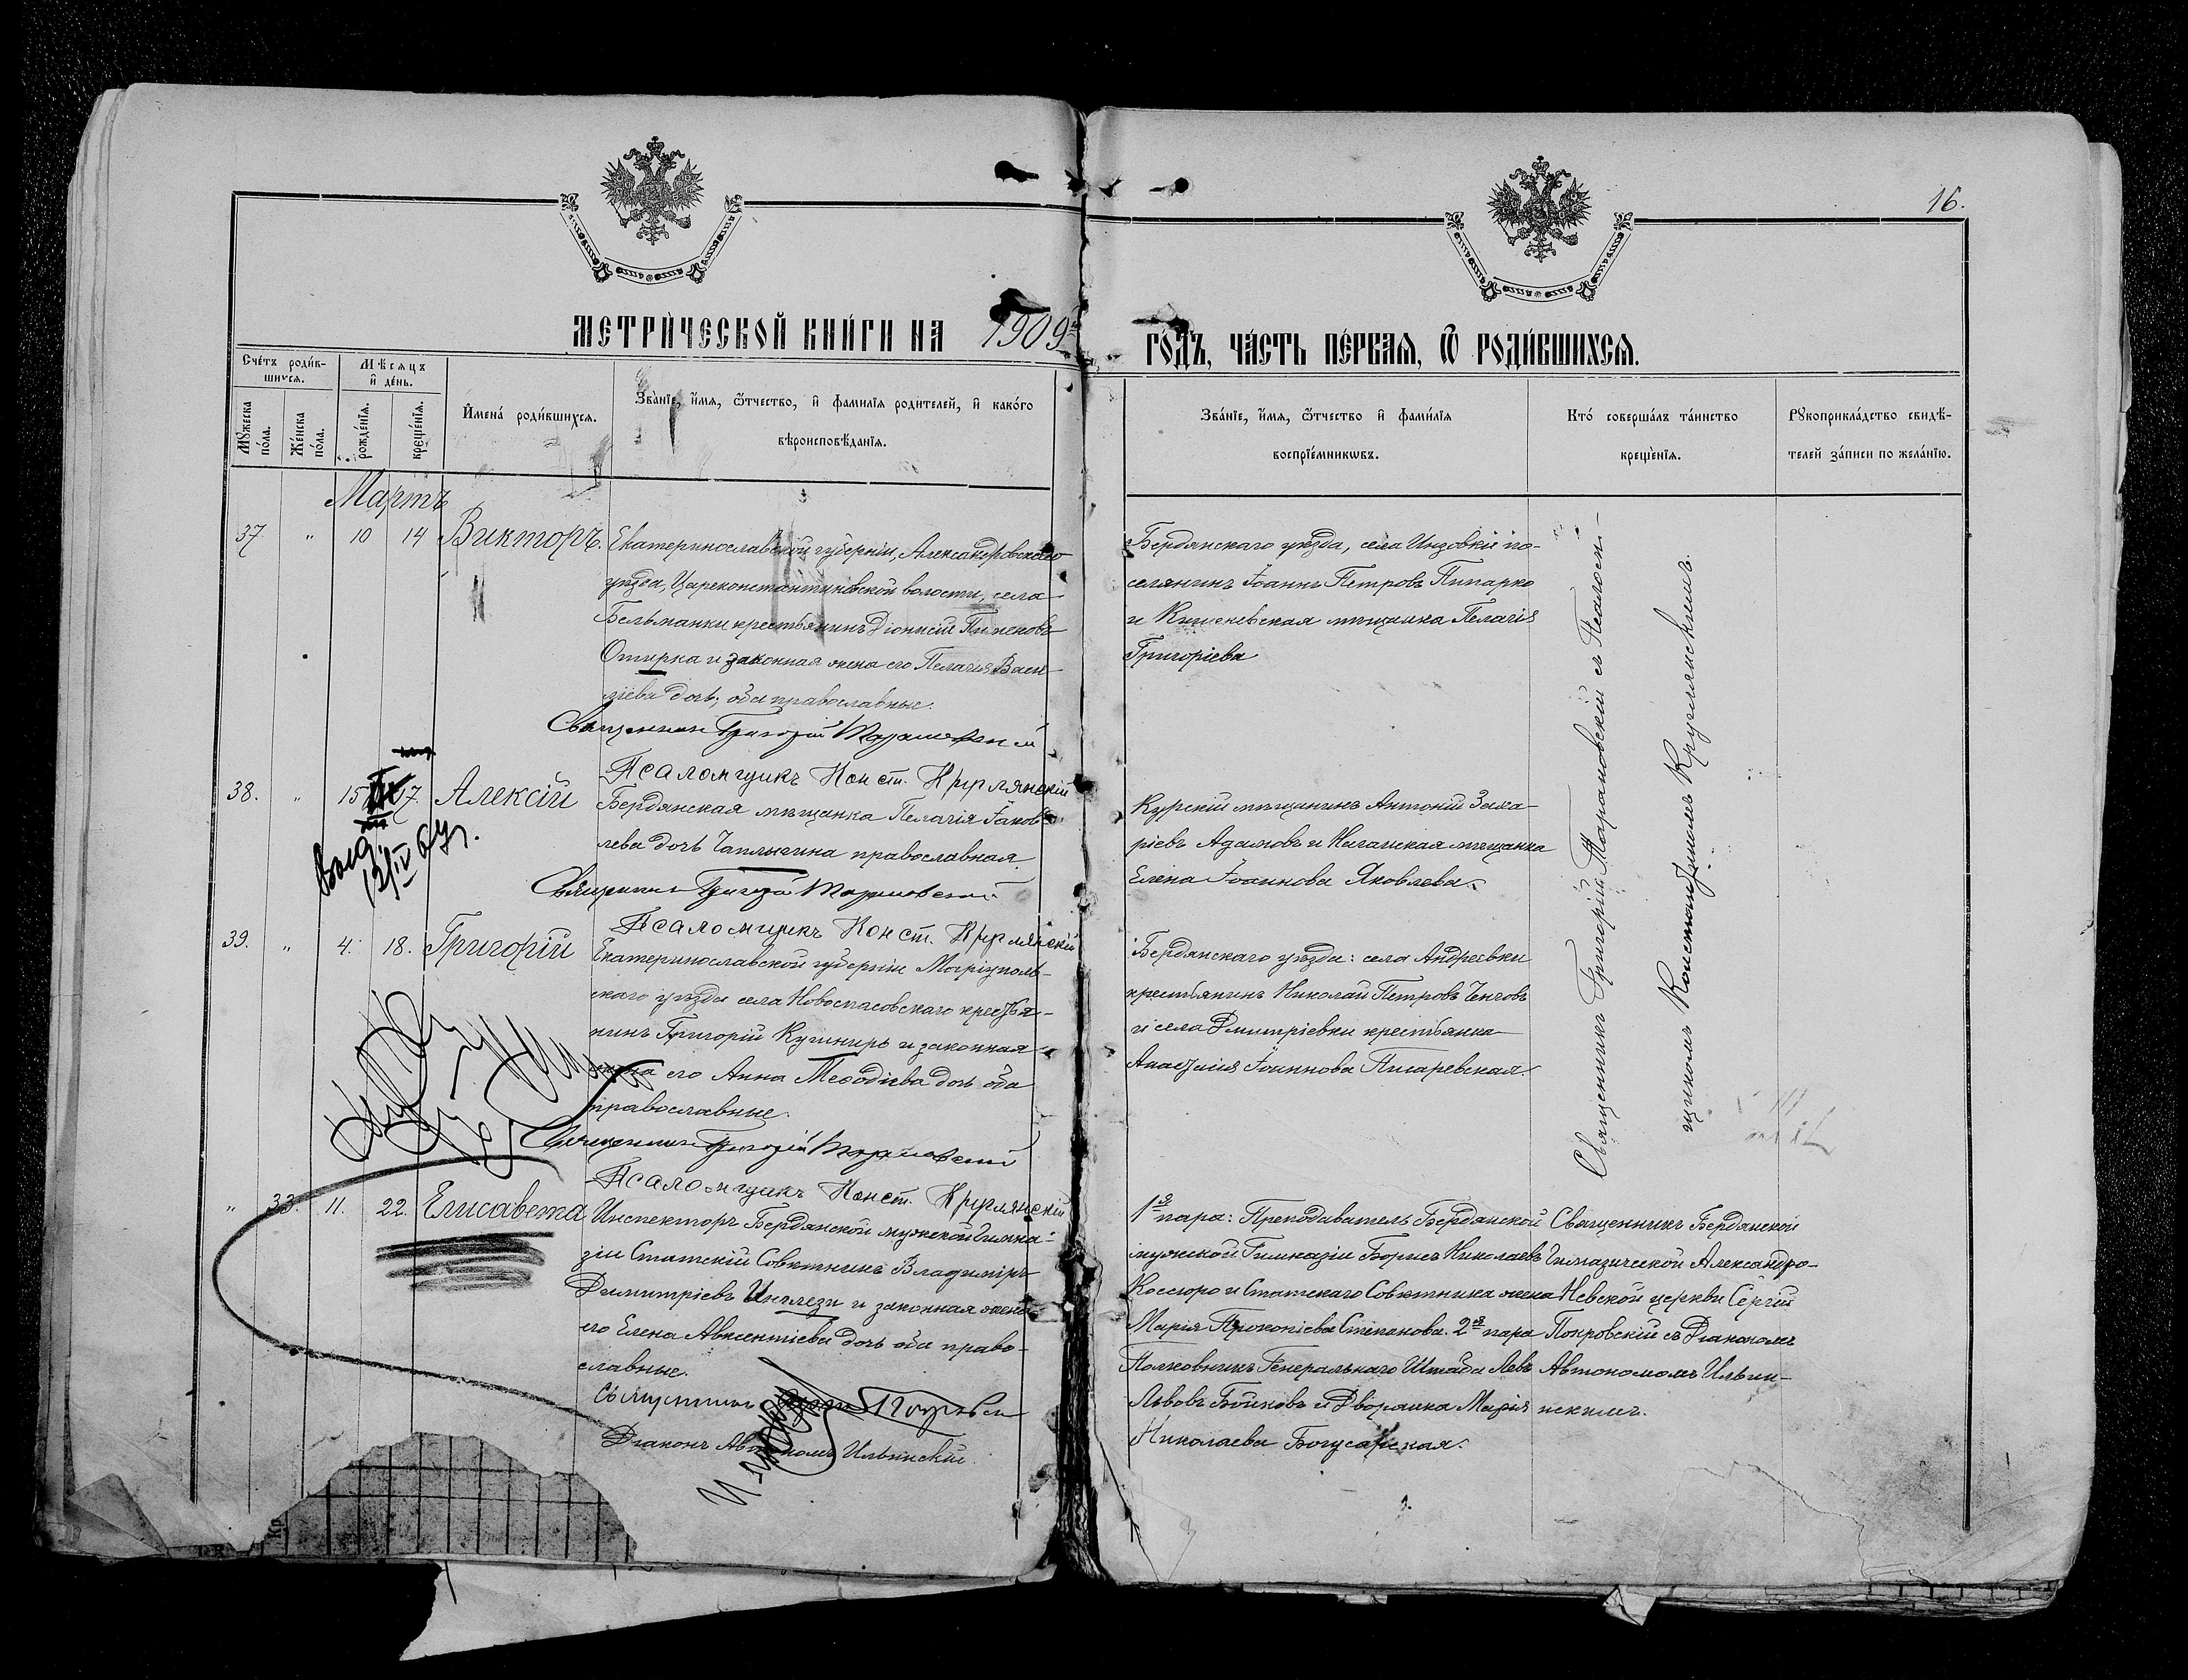 16.
МЕТРИ́ЧЕСКОЙ КНИ́ГИ НА 1909й
ГО́ДЪ, ЧА́СТЬ ПЕ́РВАЯ, Ѿ РОДИ́ВШИХСЯ.
Сче́тъ роди́в-
шихся.
Мѣ́сяцъ
и҆ де́нь.
Мꙋ́жеска
по́ла.
Же́нска
по́ла.
рожде́нїя.
креще́нїя.
И҆мена́ роди́вшихся.
Зва́нїе, и҆́мя, ѻ҆́тчество, и҆ фами́лїя роди́телей, и҆ како́го
вѣроисповѣ́данїя.
Зва́нїе, и҆́мя, ѻ҆́тчество и҆ фами́лїя
воспрїе́мникѡвъ.
Кто́ соверша́лъ та́инство
креще́нїя.
Рꙋкоприкла́дство свидѣ́-
телей за́писи по жела́нїю.
Мартъ
37. " 10 14 Викторъ.
Екатеринославской губерніи, Александровскаго
уѣзда, Цареконстантиновской волости, села
Бельманки крестьянинъ Діонисій Пименовъ
Отирка и законная жена его Пелагія Васи-
ліева дочь, оба православные.
Священникъ Григорій Марановскій
Псаломщикъ Конст. Круглянскій
Бердянскаго уѣзда, села Инзовки по-
селянинъ Іоаннъ Петровъ Пипарко
и Кишеневская мѣщанка Пелагія
Григоріева
38. " 15 17. Алексій
Бердянская мѣщанка Пелагія Іаков-
лева дочь Чаплыгина православная
Священникъ Григорій Марановскій
Псаломщикъ Конст. Круглянскій
Курскій мѣщанинъ Антоній Заха-
ріевъ Адамовъ и Ногайская мѣщанка
Елена Іоаннова Яковлева.
Выд.
12/IV
39. " 4. 18. Григорій
Екатеринославской губерніи Маріуполь-
скаго уѣзда села Новоспасовскаго крестья-
нинъ Григорій Кушниръ и законная
жена его Анна Меѳодіева дочь оба
православные.
Священникъ Григорій Марановскій
Псаломщикъ Конст. Круглянскій
Бердянскаго уѣзда: села Андреевки
крестьянинъ Николай Петровъ Ченговъ
и села Дмитріевки крестьянка
Анастасія Іоаннова Писаревская.
Священникъ Григорій Марановскій съ Псалом-
щикомъ Константиномъ Круглянскимъ.
" 33. 11. 22. Елисавета
Инспекторъ Бердянской мужской Гимна-
зіи Статскій Совѣтникъ Владиміръ
Димитріевъ Инглези и законная жена
его Елена Авксентіева дочь оба право-
славные.
Священникъ Сергій Покровскій
Діаконъ Автономъ Ильинскій.
1я пара: Преподаватель Бердянской
мужской Гимназіи Борисъ Николаевъ
Коссюро и Статскаго Совѣтника жена
Марія Прокопіева Степанова. 2я пара
Полковникъ Генеральнаго Штаба Левъ
Львовъ Байковъ и Дворянка Марія
Николаева Богусарская.
Священникъ Бердянской
Гимназической Александро-
Невской церкви Сергій
Покровскій съ Діакономъ
Автономомъ Ильин-
искимъ.